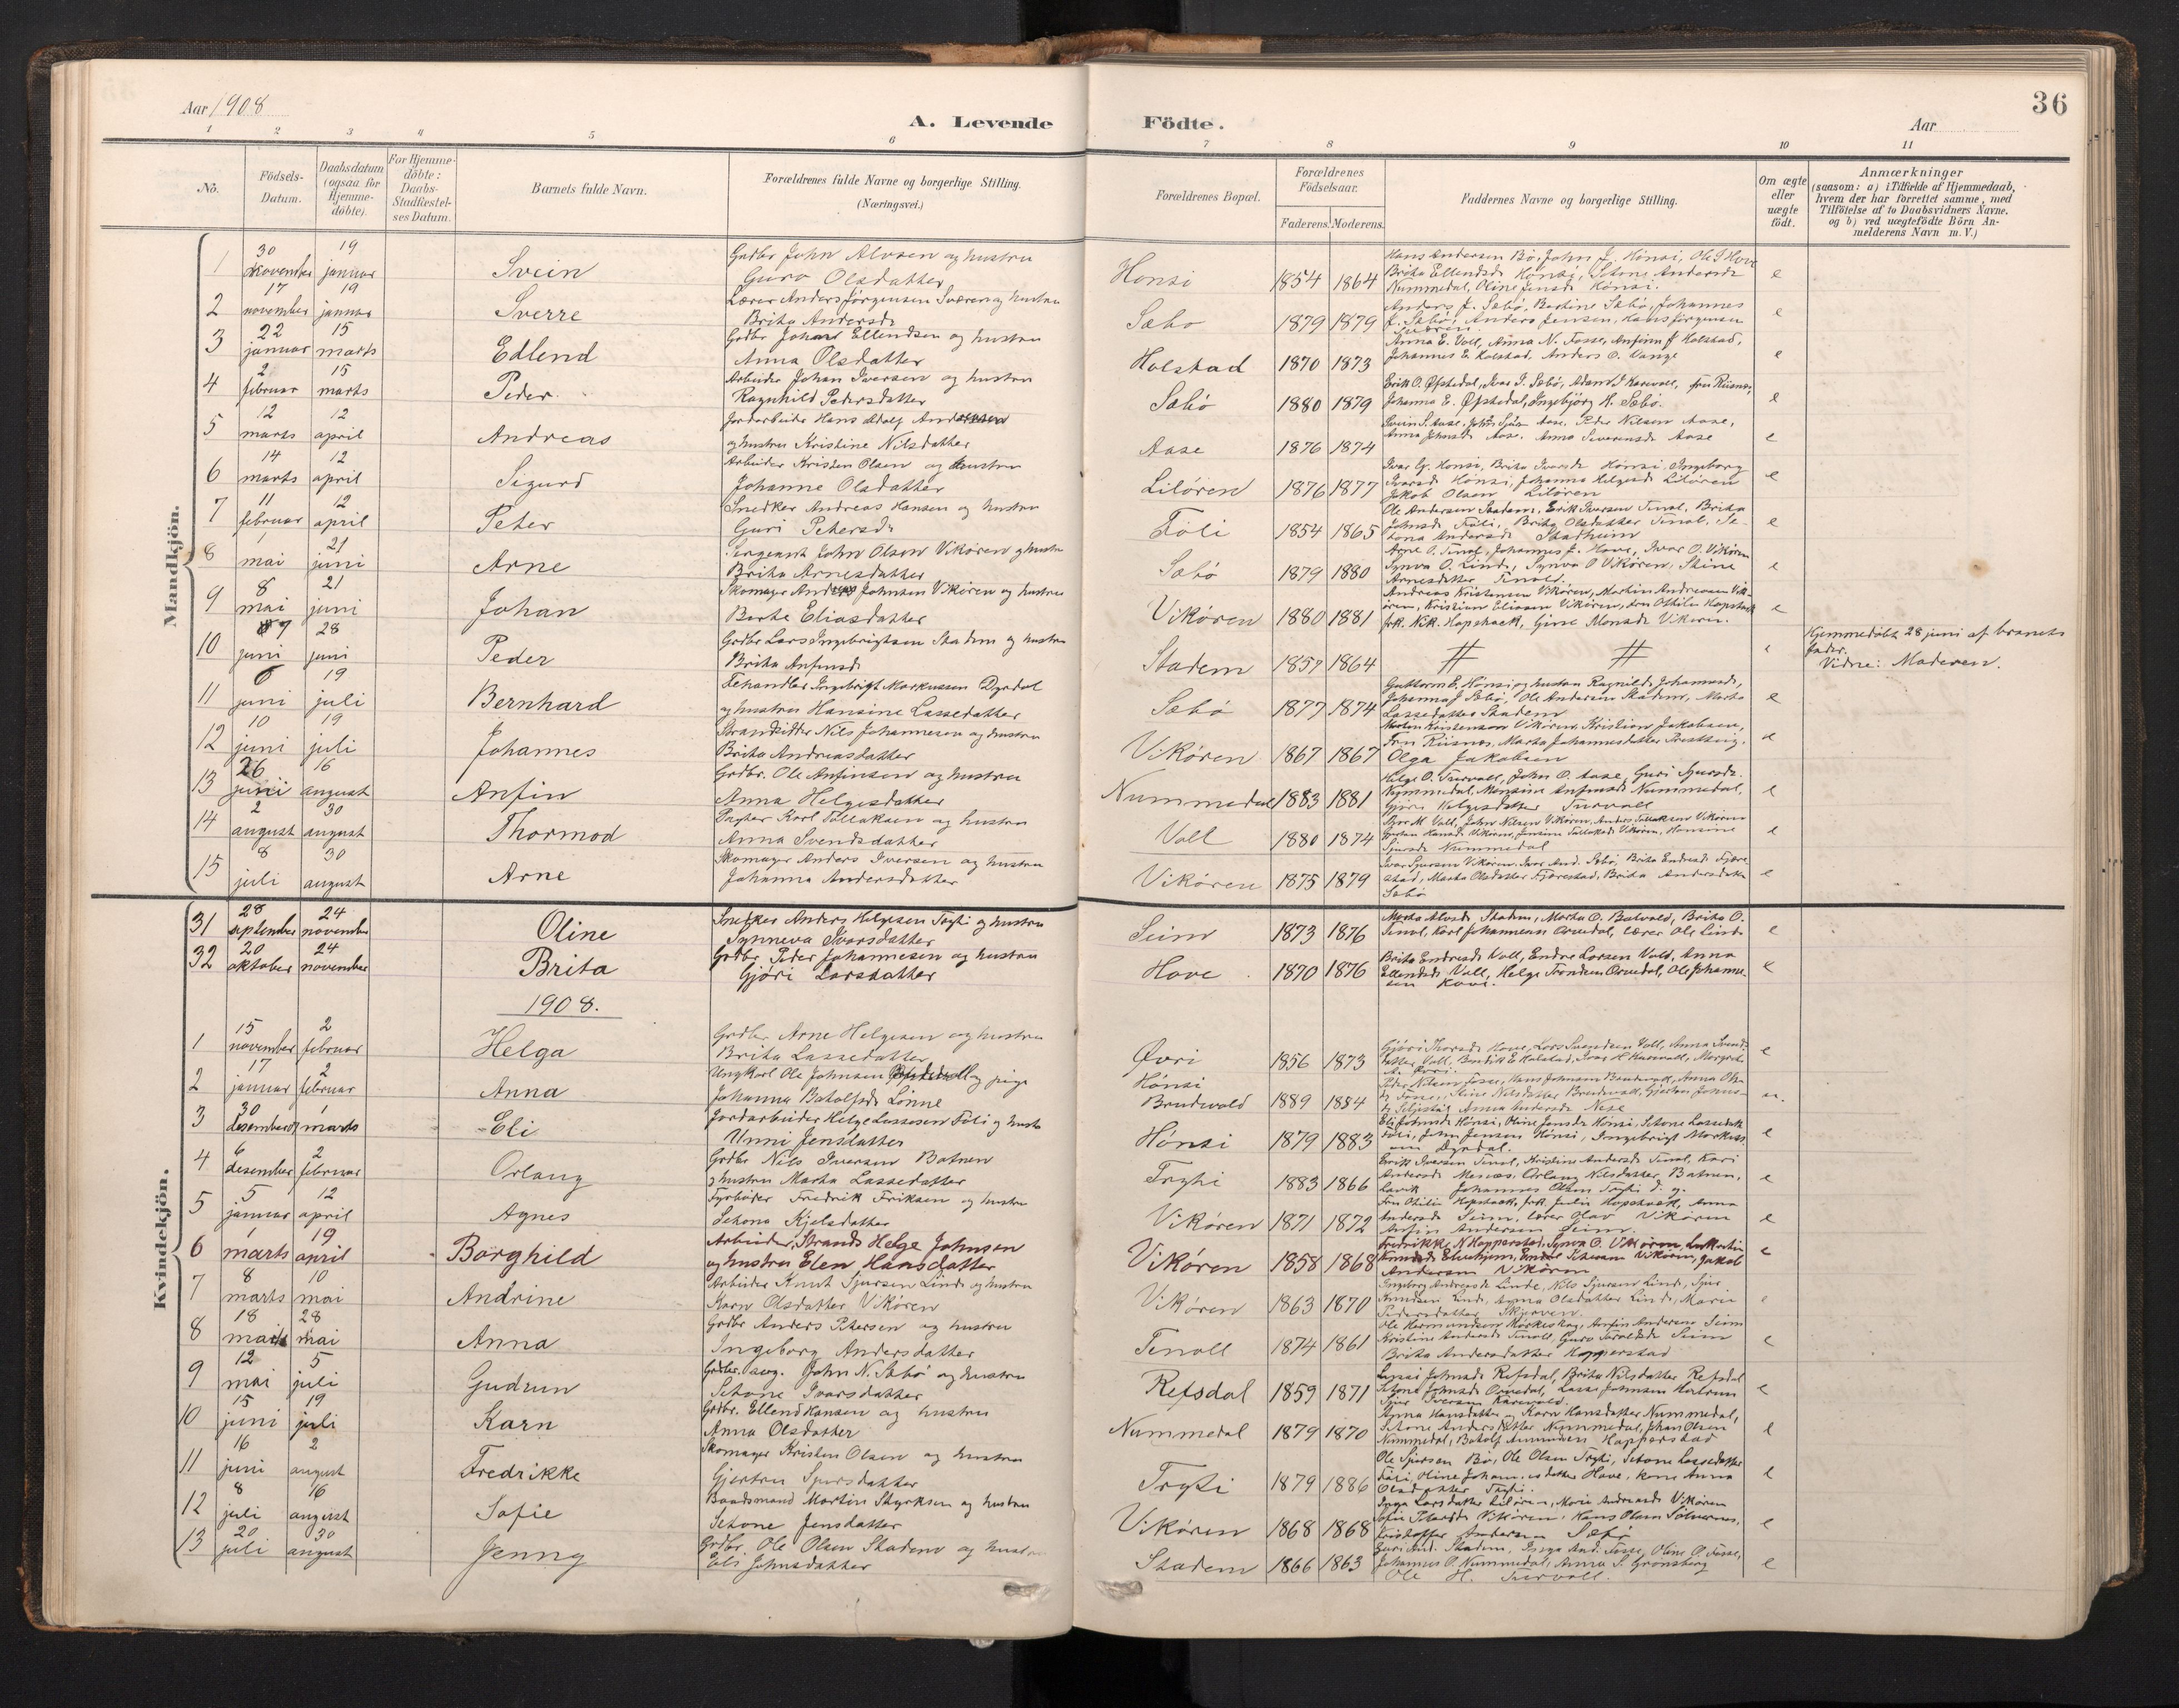 Aar 1908
A. Levende Födte.
Aar
36
1 2 3 4 5 6 7 8 9 10 11
No. Födsels-Datum. Daabsdatum (ogsaa for Hjemme-döbte). For Hjemme-döbte: Daabs-Stadfæstel-ses Datum. Barnets fulde Navn. Forældrenes fulde Navne og borgerlige Stilling. (Næringsvei.) Forældrenes Bopæl. Forældrenes Födselsaar. Faderens. Moderens. Faddernes Navne og borgerlige Stilling. Om ægte eller uægte födt. Anmærkninger (saasom: a) i Tilfælde af Hjemmedaab, hvem der har forrettet samme, med Tilföielse af to Daabsvidners Navne. og b) ved uægtefödte Börn An-melderens Navn m. V.)
Mandkjön.
1 30 november 19 januar Svein Grdbr John Alvsen og hustru Guro Olsdatter Hønsi 1854 1864 Hans Andersen Bø, John J. Hønsi, Ole J Hove Brita Ellendsdr Hønsi, Setone Andersdr Nummedal, Oline Jensdr Hønsi. e
2 17 november 19 januar Sverre Lærer Anders Jørgensen Sværen og hustru Brita Andersdr Sæbø 1879 1879 Anders J. Sæbø, Bertine Sæbø, Johannes J. Sæbø, Anders Jensen, Hans Jørgensen Sværen e
3 22 januar 15 marts Edlend Grdbr Johan Ellendsen og hustru Anna Olsdatter Holstad 1870 1873 Anna E. Voll, Anna N. Fosse, Anfinn J Holstad, Johannes E. Holstad, Anders O. Vange e
4 2 februar 15 marts Peder Arbeider Johan Iversen og hustru Ragnhild Pedersdatter Sæbø 1880 1879 Erik O. Øfstedal, Ivar J. Sæbø, Adam J Karevoll, fru Riisnæs, Johanna E. Øfstedal, Ingebjørg H. Sæbø. e
5 12 marts 12 april Andreas Jordarbeider Hans Adolf Andersen og hustru Kristine Nilsdatter Aase 1876 1874 Svein S. Aase, John Sjur Aase, Peder Nilsen Aase, Anna Johnsdr Aase, Anna Severinsdr Aase e
6 14 marts 12 april Sigurd Arbeider Kristen Olsen og hustru Johanne Olsdatter Liløren 1876 1877 Ivar G. Hønsi, Brita Ivarsdr Hønsi, Ingeborg Ivarsdr Hønsi, Johanna Helgesdr Liløren Jakob Olsen Liløren e
7 11 februar 12 april Peter Snedker Andreas Hansen og hustru Guri Petersdr Føli 1854 1865 Ole Andersen Stadem, Erik Iversen Tenol, Brita Johnsdr Føli, Brita Olsdatter Tenol, Setona Andersdr Stadheim e
8 1 mai 21 juni Arne Sergeant John Olsen Vikøren og hustru Brita Arnesdatter Sæbø 1879 1880 Arne O. Tenol, Johannes J. Hove, Ivar O. Vikøren Synva O. Linde, Synva O Vikøren, Stine Arnesdatter Tenold. e
9 8 mai 21 juni Johan Skomager Andreas Johnsen Vikøren og hustru Berte Eliasdatter Vikøren 1880 1881 Andreas Kristensen Vikøren, Martin Andreasen Vikøren, Kristian Eliasen Vikøren, fru Othilie Hopstock frk. Nik. Hopstock, Gine Monsdr Vikøren. e
10 7 juni 28 juni Peder Grdbr Lars Ingebrigtsen Stadem og hustru Brita Anfinsdr Stadem 1857 1864 # # e Hjemmedøbt 28 juni af barnets fader. Vidne: Moderen.
11 6 juni 19 juli Bernhard Fehandler Ingebrigt Markussen Dyrdal og hustru Hansine Lassedatter Sæbø 1877 1874 Guttorm E. Hønsi og hustru Ragnilde Johannesdr, Johanna J Sæbø, Ole Andersen Stadem, Marta Lassedatter Stadem e
12 10 juni 19 juli Johannes Strandsidder Nils Johannesen og hustru Brita Andreasdatter Vikøren 1867 1867 Martin Kristensen Vikøren, Kristian Jakobsen, Fru Riisnæs, Marta Johannesdatter Presteig, Olga Jakobsen e
13 26 juni 16 august Anfin Grdbr. Ole Anfinsen og hustru Anna Helgesdatter Nummedal 1883 1881 Helge O. Turvoll, John O. Aase, Guri Sjursdr. Nummedal, Monsine Anfinsdr Nummedal, Gjøri Helgesdatter Turvoll e
14 2 august 30 august Thormod Karl Tollaksen og hustru Anna Svendsdatter Voll 1880 1874 M. Voll, John Nilsen Vikøren, Anders Tollaksen Vikøren Hansdr Vikøren, Jensine Tollaksdr Vikøren, Hansine Sjursdr Nummedal e
15 8 juli 30 august Arne Skomager Anders Iversen og hustru Johanna Andersdatter Vikøren 1875 1879 Ivar Sjursen Vikøren, Ivar And. Sæbø, Brita Endresdr Fjærestad, Marta Olsdatter Fjærestad, Brita Andersdatter Sæbø e
Kvindekjön.
31 28 september 24 november Oline Snedker Anders Helgesen Tryti og hustru Synneva Ivarsdatter Seim 1873 1876 Marta Alvsdr Stadem, Marta O. Balvold, Brita O. Tenol, Karl Johannesen Orvedal, lærer Ole Linde e
32 20 oktober 24 november Brita Grdbr Peder Johannesen og hustru Gjøri Larsdatter Hove 1870 1876 Brita Endresdr Voll, Endre Larsen Vold, Anna Ellendsdr Voll, Helge Trondsen Orvedal, Ole Johannesen Hove. e
1908.
1 15 november 2 februar Helga Grdbr Arne Helgesen og hustru Brita Lassedatter Øvri 1856 1873 Gjøri Thorsdr Hove, Lars Svendsen Voll, Anna Svendsdatter Voll, Bendik E Holstad, Ivar H Karevoll, Margreta A. Øvri. e
2 17 januar 2 februar Anna Ungkarl Ole Johnsen og pige Johanna Botolfsdr Lønne Hønsi Brudevold 1889 1884 Peder Nilsen Fosse, Hans Johnsen Brudevold, Anna Olsdr Fosse, Stine Nilsdatter Brudevold, Gjertru Johnsdr Seljestøl Anna Andersdr Nese u.
3 30 desember 07 1 marts Eli Jordarbeider Helge Lassesen Føli og hustru Unni Jensdatter Hønsi 1879 1883 Eli Johnsdr Hønsi, Oline Jensdr Hønsi, Setone Lassedatter Føli, John Jensen Hønsi, Ingebrigt Markussen Dyrdal. e
4 6 desember 2 februar Orlaug Grdbr Nils Iversen Botnen og hustru Marta Lassedatter Tryti 1883 1866 Erik Iversen Tenol, Kristine Andersdr Tenol, Kari Andersdr Menæs, Orlaug Nilsdatter Botnen, Lavik Johannes Olsen Tryti d. y. e
5 5 januar 12 april Agnes Fyrbøder Fredrik Eriksen og hustru Setona Kjelsdatter Vikøren 1871 1872 Fru Othilie Hopstock, frk. Julie Hopstock, Anna Andersdr Seim, lærer Olav Vikøren Anfin Andersen Seim. e
6 1 marts 19 april Borghild Arbeider, Strands Helge Johnsen og hustru Elen Hansdatter Vikøren 1858 1868 Fredrikke N Hopperstad, Synva O. Vikøren, Vikøren, Jakob Andersen Vikøren e
7 8 marts 10 mai Andrine Arbeider Knut Sjursen Linde og hustru Karn Olsdatter Vikøren Vikøren 1863 1870 Ingeborg Andreasdr Linde, Nils Sjursen Linde, Sjur Knudsen Linde, Anna Olsdatter Linde, Marie Pedersdatter Skjørven. e
8 18 mai 28 mai Anna Grdbr Anders Petersen og hustru Ingeborg Andersdatter Tenoll 1874 1861 Ole Hermundsen Mørkeskog, Anfin Andersen Seim Kristine Andersdr Tenoll, Guro Haraldsdr Seim Brita Andersdatter Hopperstad e
9 12 mai 5 juli Gudrun Grdbr. og John N. Sæbø og hustru Setone Ivarsdatter Refsdal 1859 1871 Lussi Johnsdr Refsdal, Brita Nilsdatter Refsdal Setone Johnsdr Orvedal, Lasse Johnsen Hallrun Sjur Iversen Karevold. e
10 15 juni 19 juli Karn Grdbr. Ellend Hansen og hustru Anna Olsdatter Nummedal 1879 1870 Anna Hansdatter og Karn Hansdatter Nummedal, Setone Andersdatter Nummedal, Johan Olsen Nummedal, Botolf Hopperstad e
11 16 juni 2 august Fredrikke Skomager Kristen Olsen og hustru Gjertru Sjursdatter Tryti 1879 1886 Ole Sjursen Bø, Ole Olsen Tryti, Setone Lassedatter Føli, Oline Johannesdatter Hove, kone Anna Olsdatter Tryti. e
12 8 juli 16 august Sofie Baadsmand Martin Styrksen og hustru Setone Jensdatter Vikøren 1868 1868 Inga Larsdatter Liløren, Marie Andreasdr Vikøren Sofie Petersdr Vikøren, Hans Olsen Sølvernes, Kristoffer Andersen Sæbø e
13 20 juli 30 august Jenny Grdbr. Ole Olsen Stadem og hustru Eli Johnsdatter Stadem 1866 1863 Guri And. Stadem, Inga And. Fosse, Oline O. Fosse, Johannes O. Nummedal, Anna S. Grønsberg Ole H. Turvoll. e